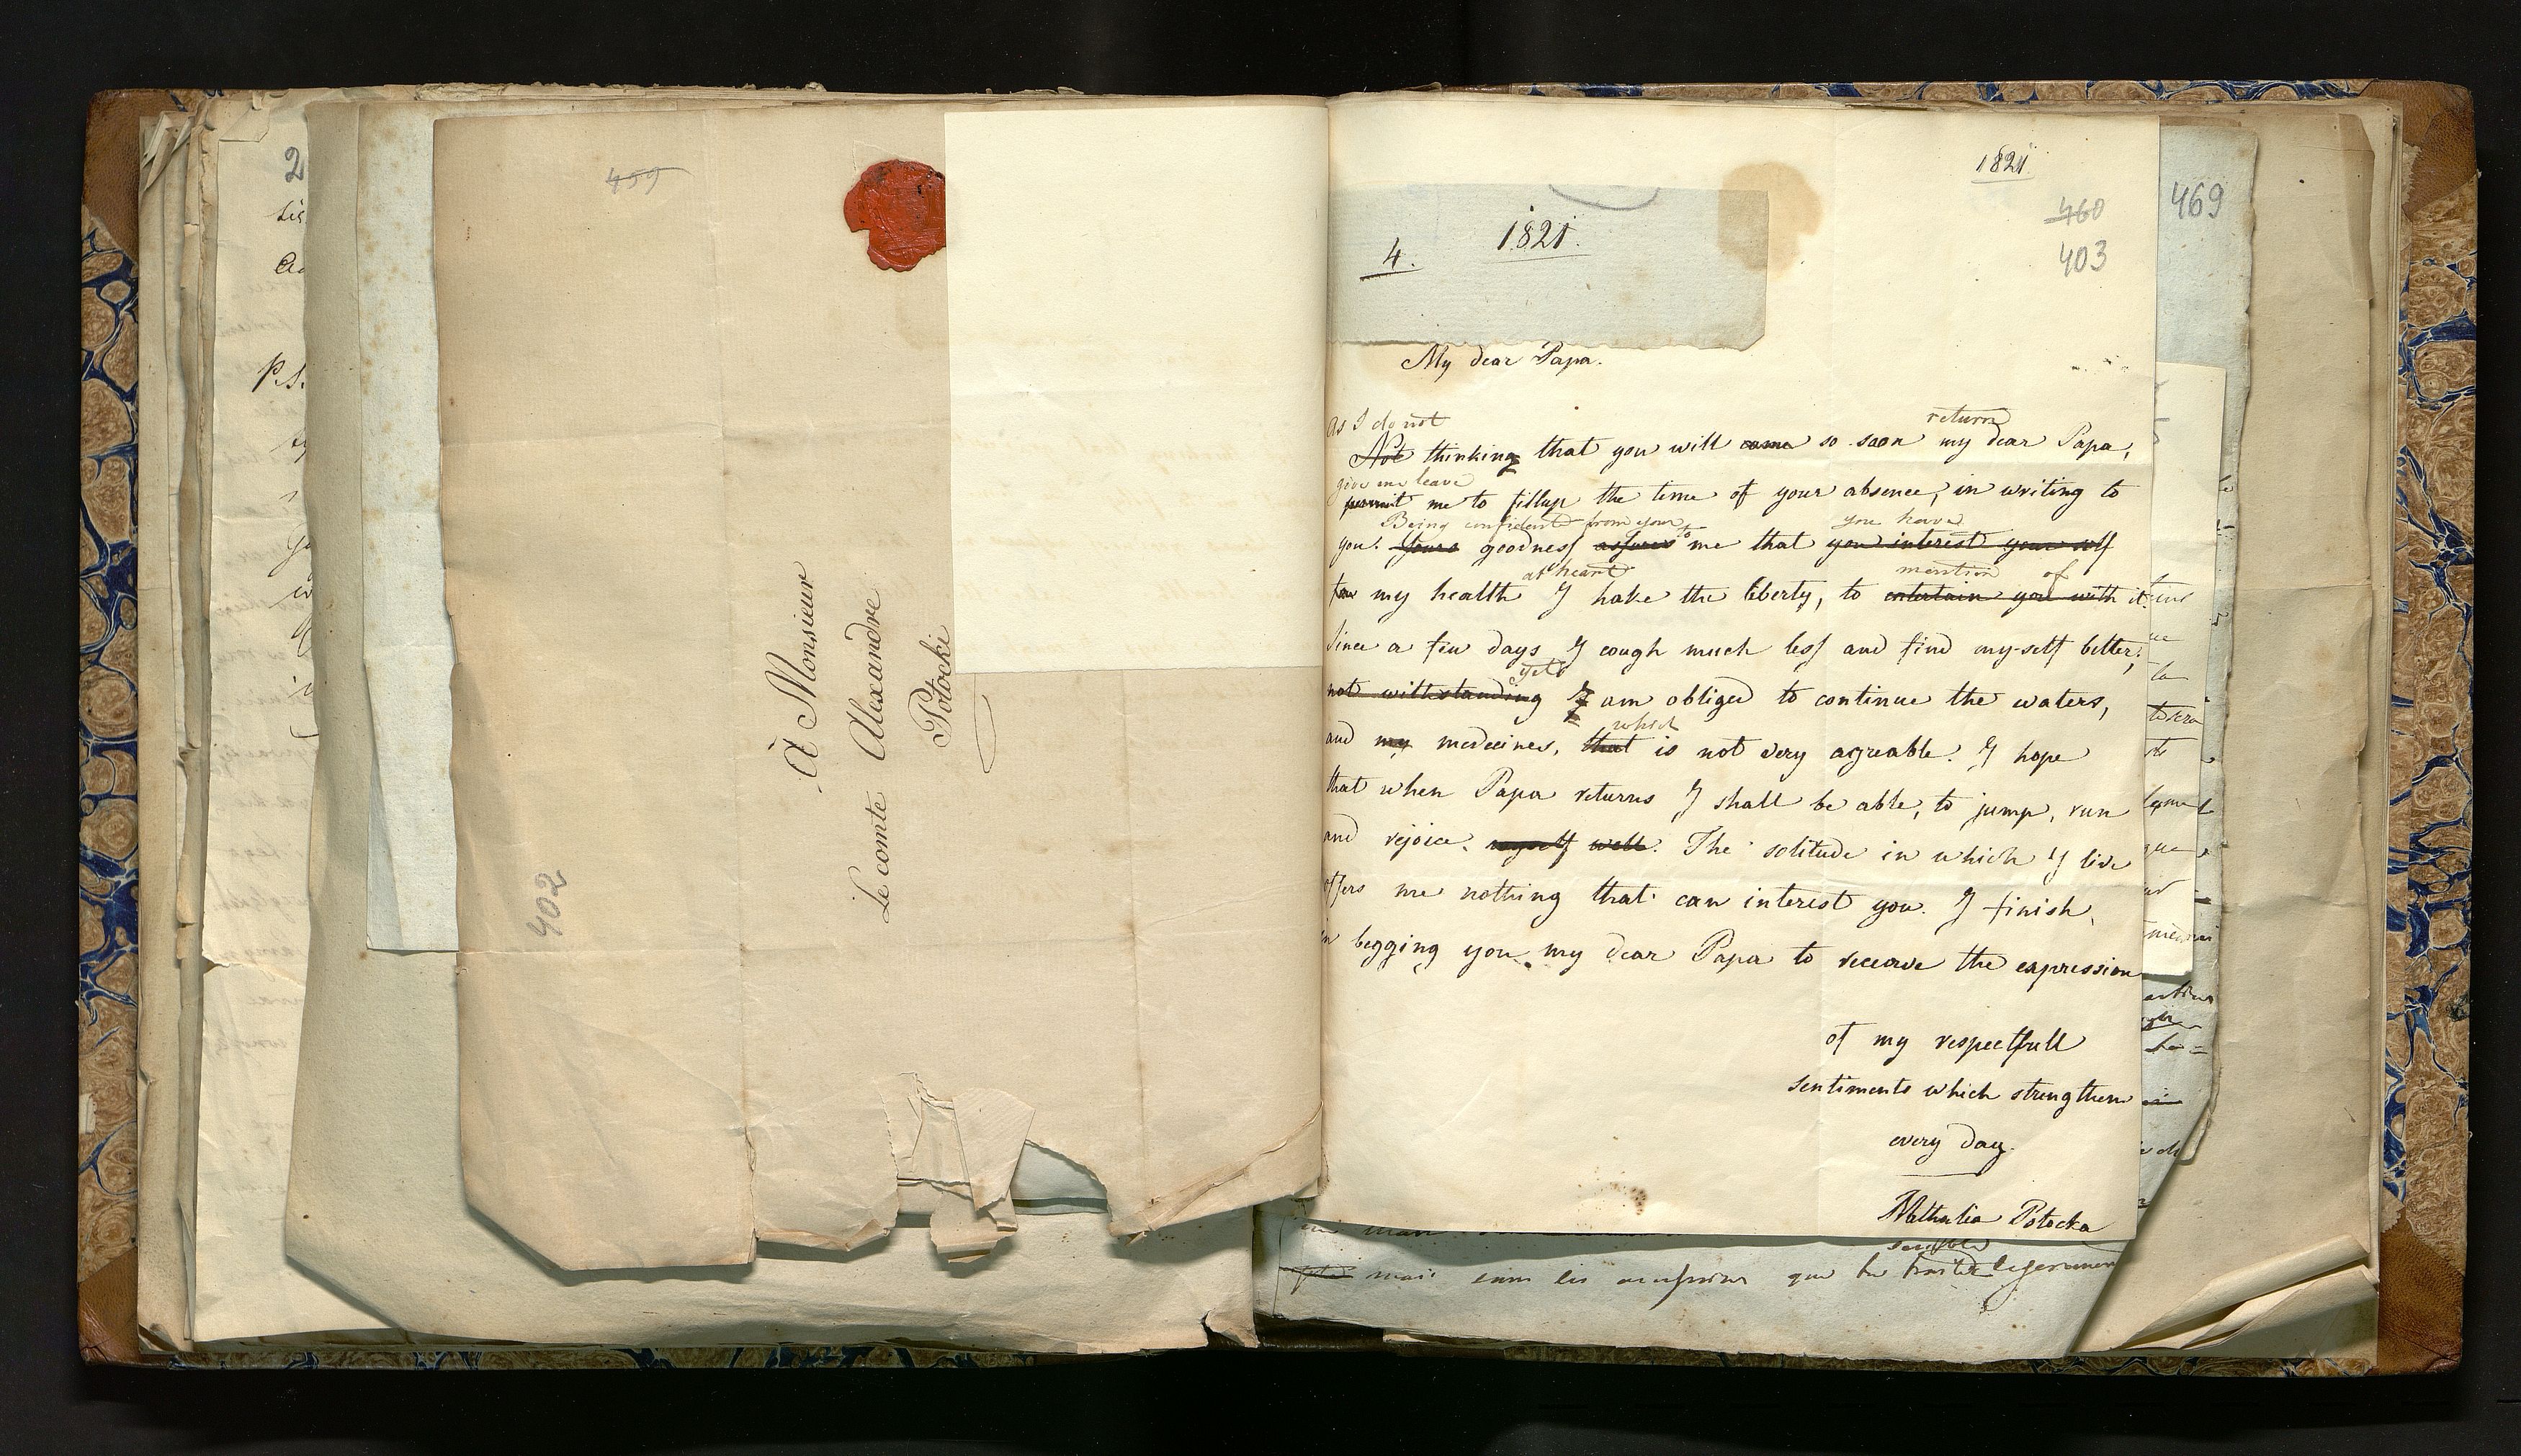 2
P.S.
459
402
À Monsieur
Le comte Alexandre
Potocki
1821
460
403
469
4.
1821.
My dear Papa.
as I do not return
Not thinking that you will come so soon my dear Papa,
give me leave
permit me to fillup the time of your absence, in writing to
Being confident from your to you have
you. Yours goodness assures me that you interest your self
at heart mention of
for my health I take the liberty, to entertain you with it.
Since a few days I cough much less and find my-self better;
yett
not withstanding I am obliged to continue the waters,
which
and my medecines, that is not very agreable. I hope
that when Papa returns I shall be able, to jump, run
and rejoice. myself well. The solitude in which I live
offers me nothing that can interest you. I finish,
in begging you my dear Papa to receave the expression
of my respectfull
sentiments which strengthen
every day.
Nathalia Potocka
mais que tu traiter